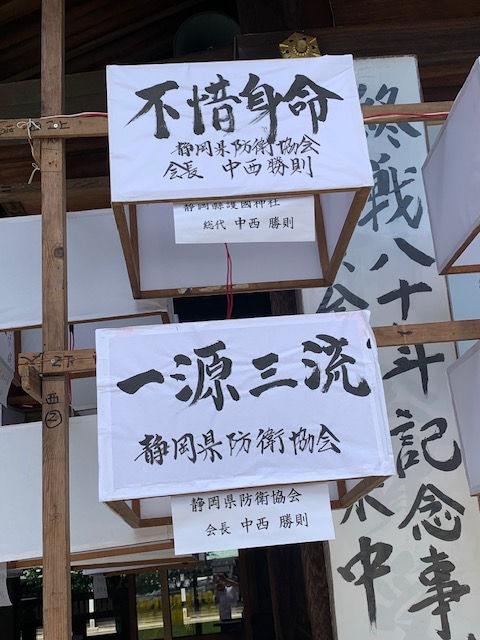 不惜身命
静岡県防衛協会
会長 中西勝則
静岡縣護國神社
総代 中西 勝則
一源三流
静岡県防衛協会
静岡県防衛協会
会長 中西 勝則
終戦八十年記念事
中
西
②